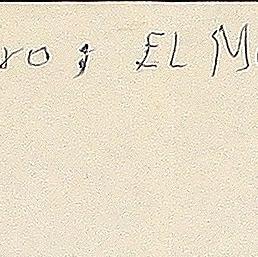 ro; EL M